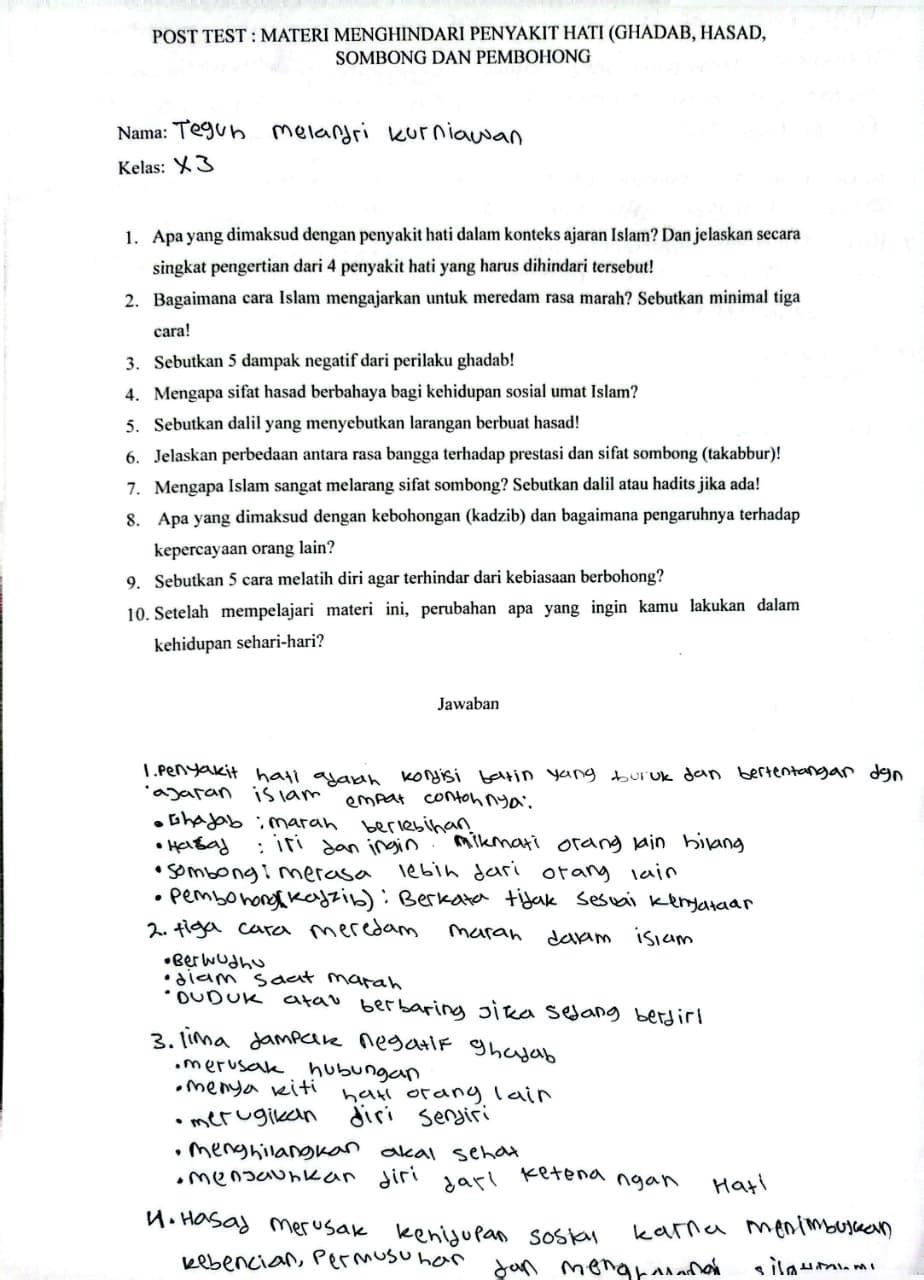 POST TEST : MATERI MENGHINDARI PENYAKIT HATI (GHADAB, HASAD,
SOMBONG DAN PEMBOHONG
Nama: Teguh melandri kurniawan
Kelas: X3
1. Apa yang dimaksud dengan penyakit hati dalam konteks ajaran Islam? Dan jelaskan secara
singkat pengertian dari 4 penyakit hati yang harus dihindari tersebut!
2. Bagaimana cara Islam mengajarkan untuk meredam rasa marah? Sebutkan minimal tiga
cara!
3. Sebutkan 5 dampak negatif dari perilaku ghadab!
4. Mengapa sifat hasad berbahaya bagi kehidupan sosial umat Islam?
5. Sebutkan dalil yang menyebutkan larangan berbuat hasad!
6. Jelaskan perbedaan antara rasa bangga terhadap prestasi dan sifat sombong (takabbur)!
7. Mengapa Islam sangat melarang sifat sombong? Sebutkan dalil atau hadits jika ada!
8. Apa yang dimaksud dengan kebohongan (kadzib) dan bagaimana pengaruhnya terhadap
kepercayaan orang lain?
9. Sebutkan 5 cara melatih diri agar terhindar dari kebiasaan berbohong?
10. Setelah mempelajari materi ini, perubahan apa yang ingin kamu lakukan dalam
kehidupan sehari-hari?
Jawaban
1. Penyakit hati adalah kondisi batin yang buruk dan bertentangan dgn
ajaran islam empat contohnya:
• Ghadab : marah berlebihan
• Hasad : iri dan ingin nikmati orang lain hilang
• Sombong : merasa lebih dari orang lain
• Pembohong (kadzib) : Berkata tidak sesuai kenyataan
2. tiga cara meredam marah dalam islam
• Berwudhu
• diam saat marah
• DUDUK atau berbaring jika sedang berdiri
3. lima dampak negatif ghadab
• merusak hubungan
• menyakiti hati orang lain
• merugikan diri sendiri
• menghilangkan akal sehat
• menjauhkan diri dari ketena ngan Hati
4. Hasad merusak kehidupan sosial karna menimbulkan
kebencian, Permusuhan dan